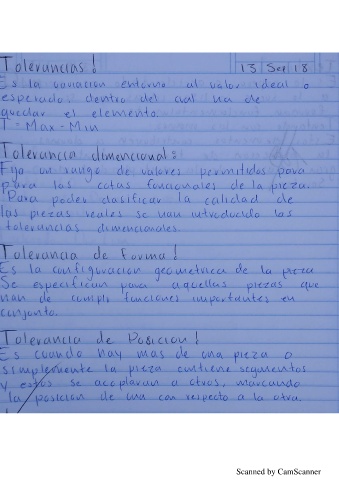 Tolerancias!
13 Sep 18
Es la variación entorno al valor ideal o
esperado. dentro del cual ha de
quedar el elemento.
T = Max - Min
Tolerancia dimencional:
Fijo un rango de valores permitidos para
para las cotas funcionales de la pieza.
Para poder clasificar la calidad de
las piezas reales se han introducido las
tolerancias dimencionales
Tolerancia de forma!
Es la configuración geometrica de la pieza
Se especifican para aquellas piezas que
han de cumplir funciones importantes en
conjunto.
Tolerancia de Posicion!
Es cuando hay mas de una pieza o
simplemente la pieza contiene segmentos
y estos se acoplaran a otros, marcando
la posicion de una con respecto a la otra.
Scanned by CamScanner